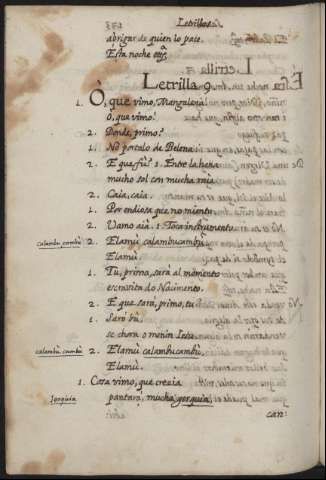 Letrillas.
abrigar a quien lo pare.
Esta noche
Letrilla 9.
1. O, que vimo, Mangalena!
o, que vimo!
2. Donde, primo?
1. No portalo de Belena.
2. E que fu? 1. Entre la hena
mucho sol con mucha raia.
2. Caia, caia.
1. Por en diosa que no miento.
2. Vamo aiá. 1. Toca instrumento.
calambú, cambú 2. Elamú calambú cambú,
Elamú.
1. Tu, primo, sará al momento
escravita do Nacimento.
2. E que sará, primo, tu?
1. Saró bu,
se chora o menin Jesu.
calambú, cambú 2. Elamú calambú cambú,
Elamú.
1. Cosa vimo, que creeia
Jorquia pantará, mucha jorquia,
can: